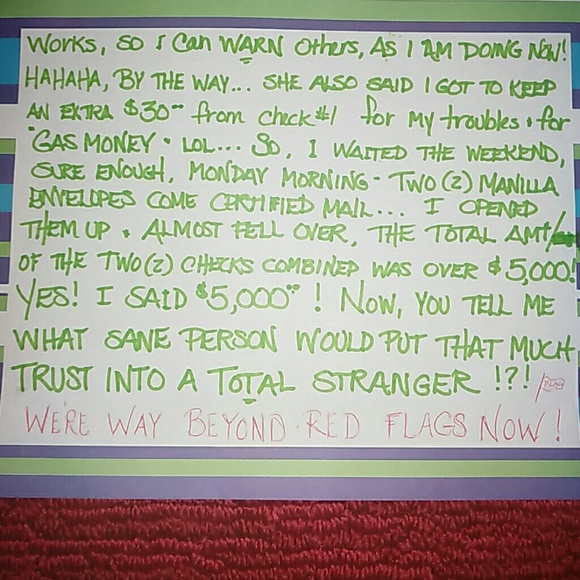 WORKS, SO I CAN WARN OTHERS, AS I AM DOING NOW!
HAHAHA, BY THE WAY... SHE ALSO SAID I GOT TO KEEP
AN EXTRA $30°° from check #1 for my troubles & for
"GAS MONEY" LOL... SO, I WAITED THE WEEKEND,
SURE ENOUGH, MONDAY MORNING - TWO (2) MANILLA
ENVELOPES COME CERTIFIED MAIL... I OPENED
THEM UP & ALMOST FELL OVER, THE TOTAL AMT/
OF THE TWO (2) CHECKS COMBINED WAS OVER $5,000!
YES! I SAID $5,000°° ! NOW, YOU TELL ME
WHAT SANE PERSON WOULD PUT THAT MUCH
TRUST INTO A TOTAL STRANGER !?! FLAG
WE'RE WAY BEYOND RED FLAGS NOW!